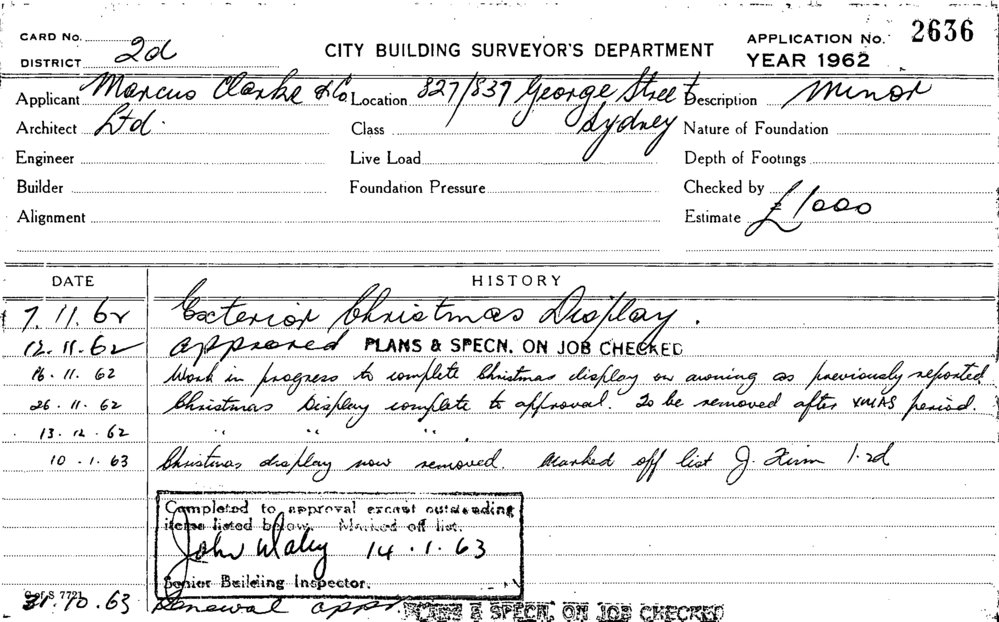 CARD No.
DISTRICT 2d
CITY BUILDING SURVEYOR'S DEPARTMENT
APPLICATION No. 2636
YEAR 1962
Applicant Marcus Clarke & Co. Location 827/837 George Street Description Minor
Architect Ltd. Class Sydney Nature of Foundation
Engineer Live Load Depth of Footings
Builder Foundation Pressure Checked by
Alignment Estimate £1000
DATE HISTORY
7.11.62 Exterior Christmas Display.
12.11.62 approved PLANS & SPECN. ON JOB CHECKED
16.11.62 Work in progress to complete Christmas display on awning as previously reported
26.11.62 Christmas Display complete to approval. To be removed after XMAS period.
13.12.62 " " "
10.1.63 Christmas display now removed. Marked off list J. 1.2d
Completed to approval except outstanding
items listed below. Marked off list.
John 14.1.63
Senior Building Inspector.
S 7721
31.10.63 Renewal appr. PLANS & SPECN. ON JOB CHECKED